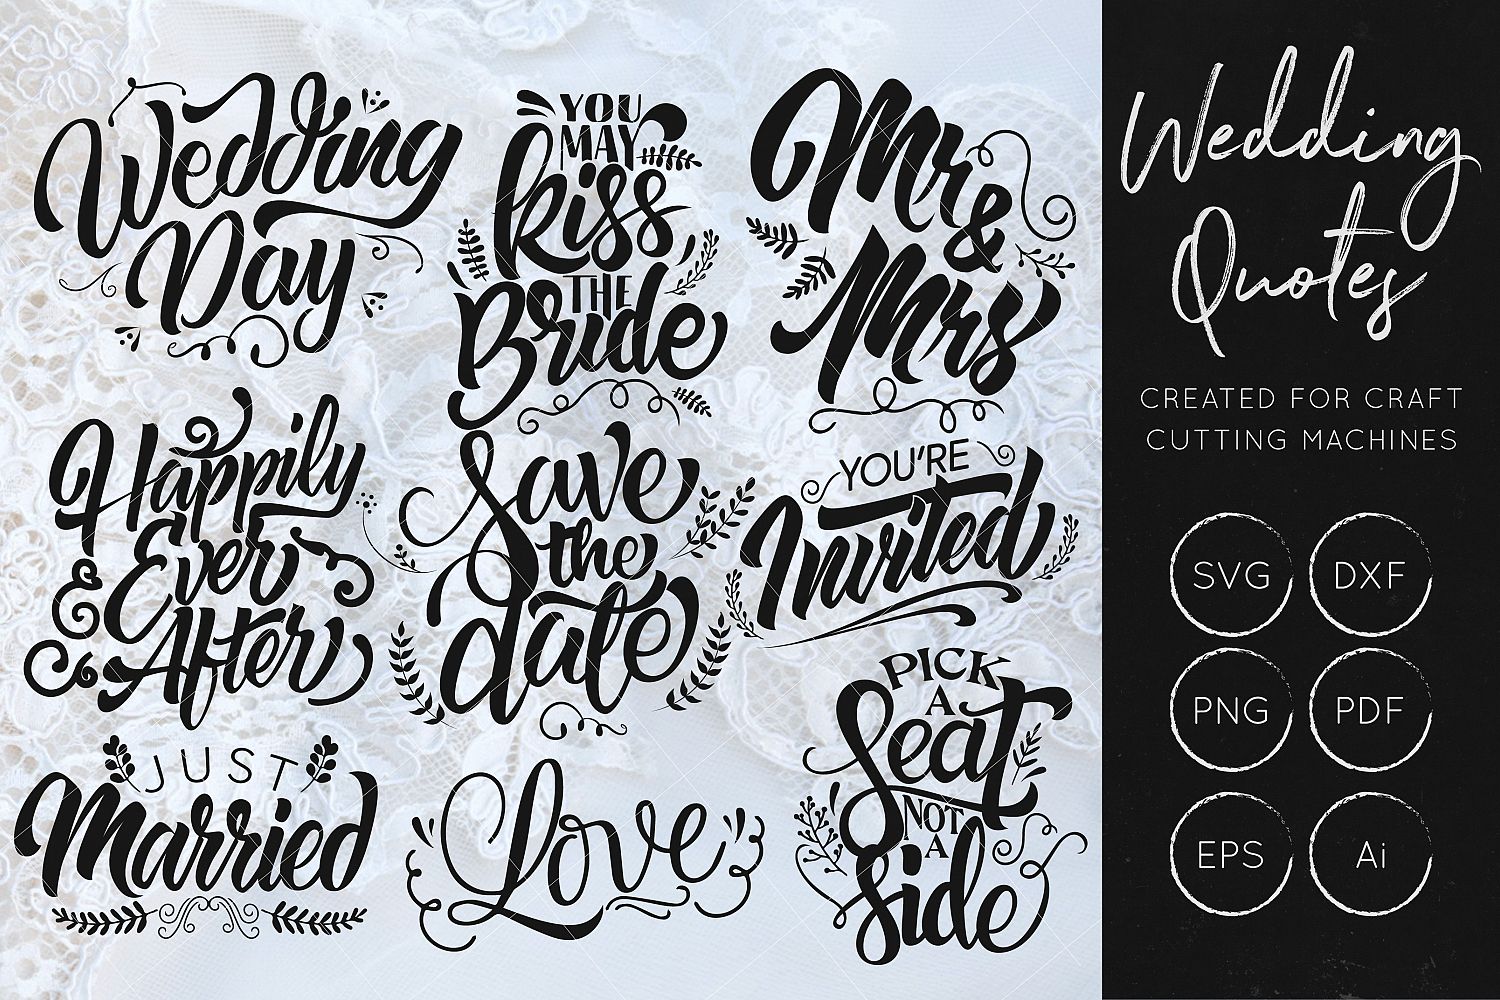 Wedding
Day
YOU
MAY
kiss
THE
Bride
Mr
&
Mrs
Happily
Ever
After
Save
the
date
YOU'RE
Invited
JUST
Married
Love
PICK
A
Seat
NOT
A
Side
Wedding
Quotes
CREATED FOR CRAFT
CUTTING MACHINES
SVG
DXF
PNG
PDF
EPS
Ai